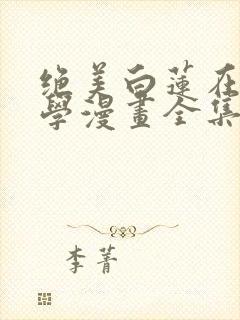 絕美白蓮在
學漫畫全集
李菁